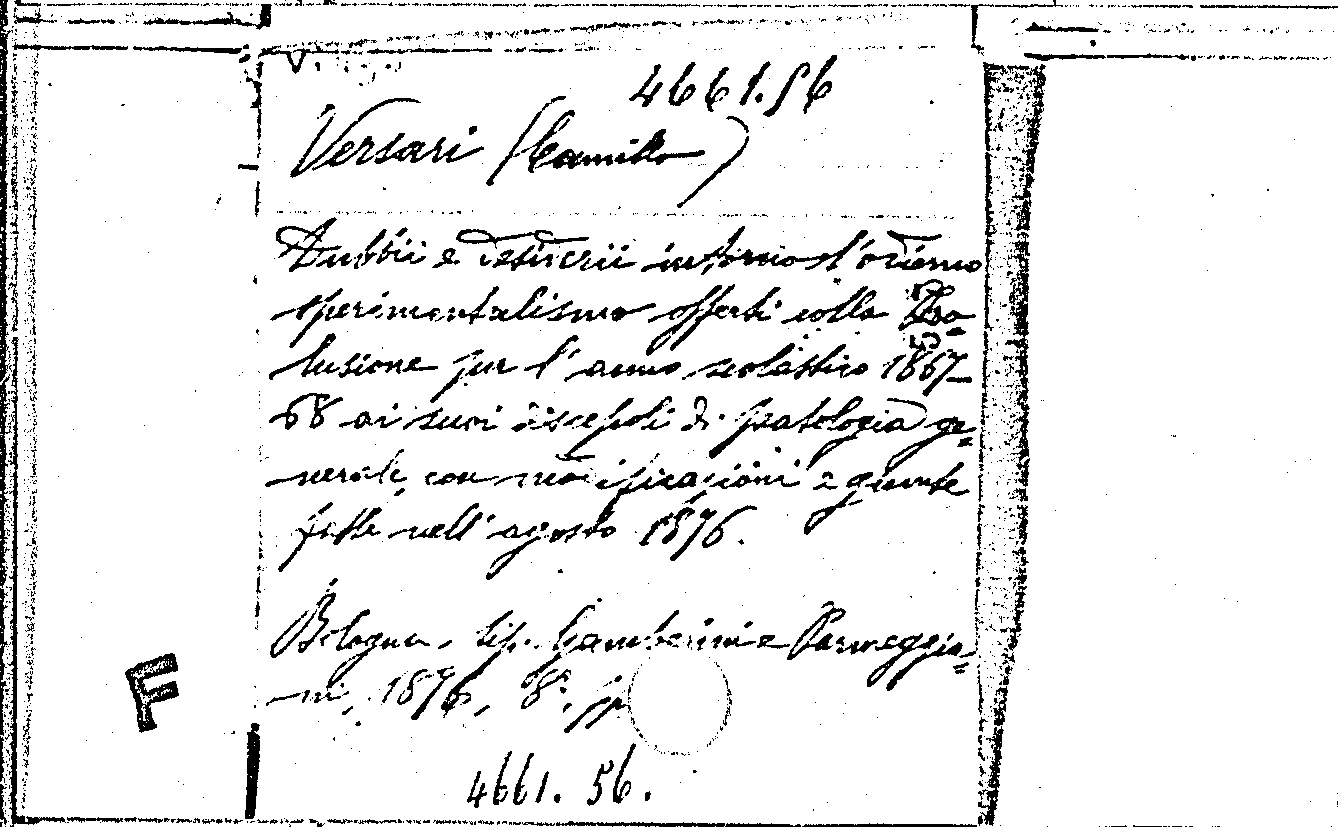 4661.56
Versari (Camillo)
Dubbii e desiderii intorno l'odierno
sperimentalismo offerti colla Pro-
lusione per l'anno scolastico 1867-
68 ai suoi discepoli di patologia ge-
nerale, con modificazioni e giunte
fatte nell'agosto 1876.
Bologna, tip. Gamberini e Parmeggia-
ni, 1876, 8°, pp
4661. 56.
F